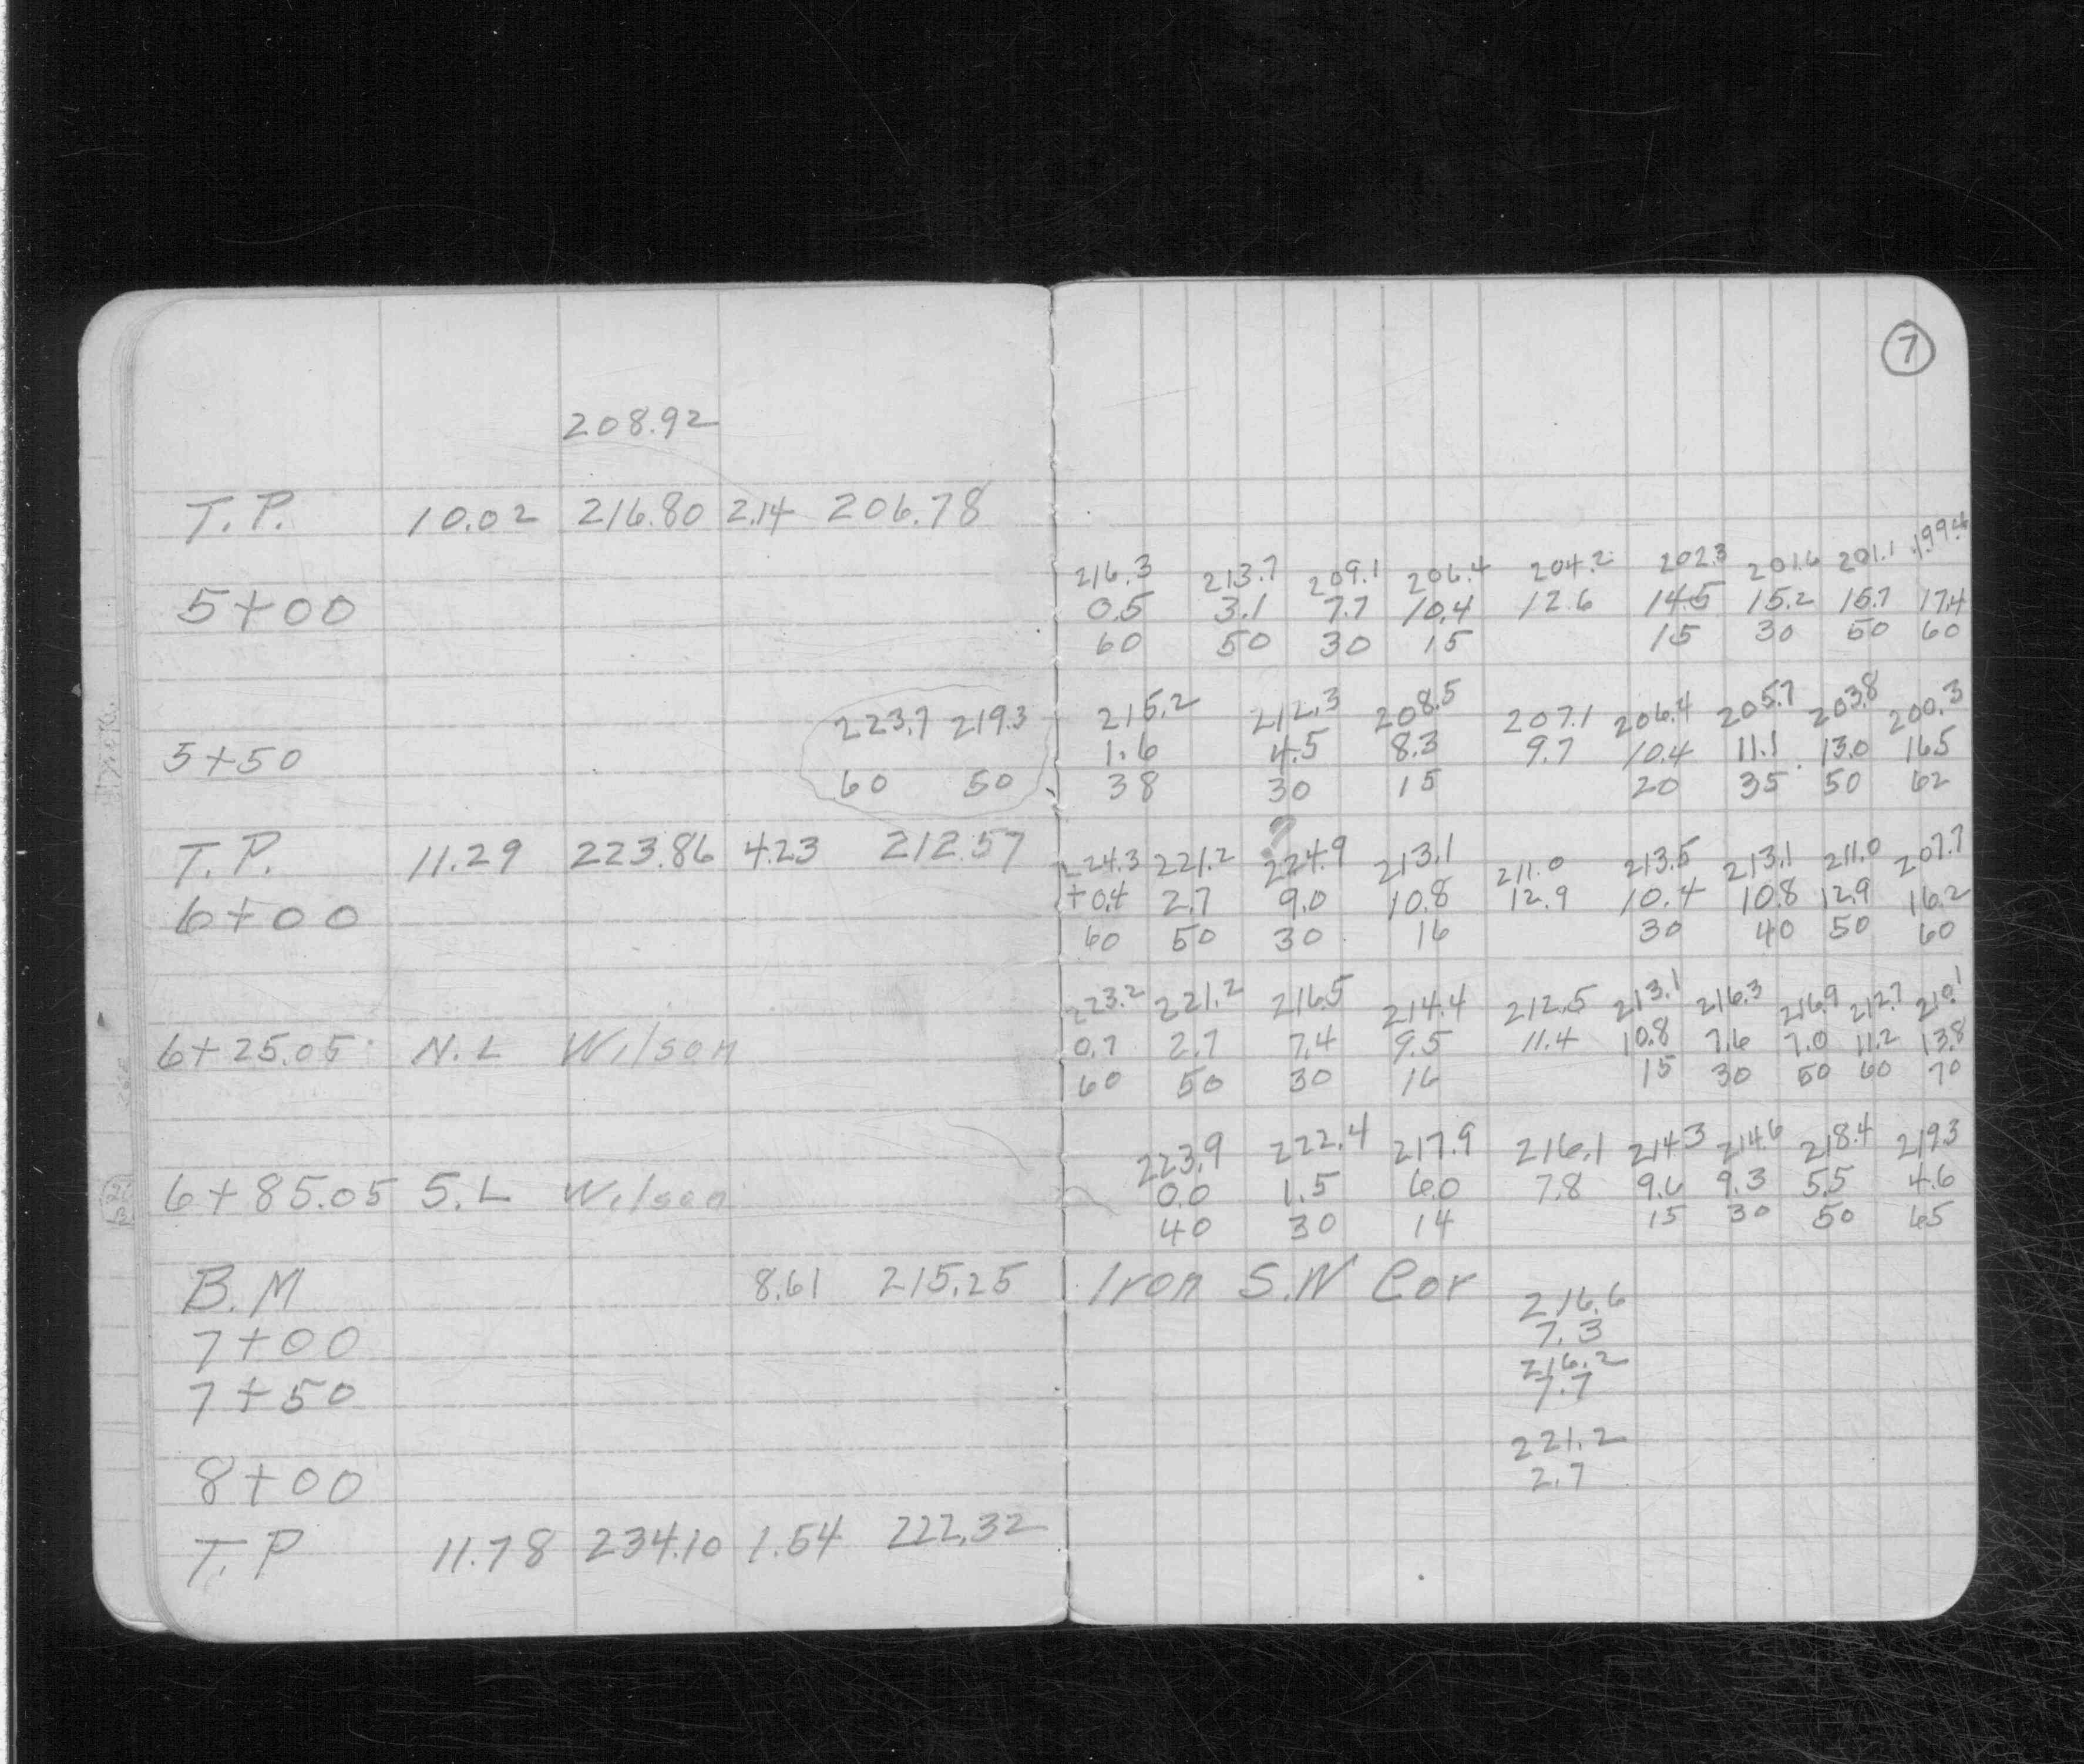 7
208.92
T.P. 10.02 216.80 2.14 206.78
216.3 213.7 209.1 206.4 204.2 202.3 201.6 201.1 199.4
5+00 0.5 3.1 7.7 10.4 12.6 14.5 15.2 15.7 17.4
60 50 30 15 15 30 50 60
223.7 219.3 215.2 212.3 208.5 207.1 206.4 205.7 203.8 200.3
5+50 1.6 4.5 8.3 9.7 10.4 11.1 13.0 16.5
60 50 38 30 15 20 35 50 62
?
T.P. 11.29 223.86 4.23 212.57 224.3 221.2 224.9 213.1 211.0 213.5 213.1 211.0 207.7
6+00 +0.4 2.7 9.0 10.8 12.9 10.4 10.8 12.9 16.2
60 50 30 16 30 40 50 60
223.2 221.2 216.5 214.4 212.5 213.1 216.3 216.9 212.7 210.1
6+25.05 N.L Wilson 0.7 2.7 7.4 9.5 11.4 10.8 7.6 7.0 11.2 13.8
60 50 30 16 15 30 50 60 70
223.9 222.4 217.9 216.1 214.3 214.6 218.4 219.3
6+85.05 S.L Wilson 0.0 1.5 6.0 7.8 9.6 9.3 5.5 4.6
40 30 14 15 30 50 65
B.M 8.61 215.25 Iron S.W Cor
216.6
7+00 7.3
216.2
7+50 7.7
221.2
8+00 2.7
T.P 11.78 234.10 1.54 222.32